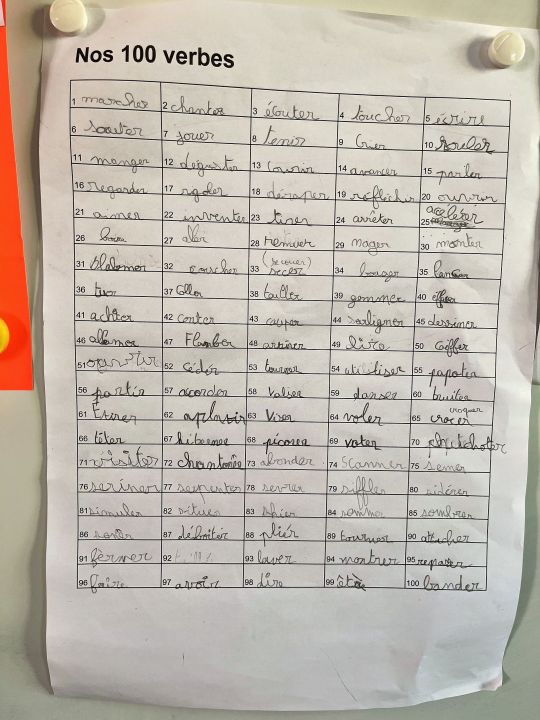 Nos 100 verbes
1 marcher 2 chanter 3 écouter 4 toucher 5 écrire
6 sauter 7 jouer 8 tenir 9 Crier 10 rouler
11 manger 12 déguster 13 Courir 14 avancer 15 parler
16 regarder 17 rigoler 18 déraper 19 réfléchir 20 ouvrir
21 aimer 22 inventer 23 tirer 24 arrêter 25
26 27 aller 28 remuer 29 nager 30 monter
31 32 33 (secouer) 34 bouger 35 lancer
36 tuer 37 Coller 38 tailler 39 gommer 40
41 achter 42 conter 43 couper 44 souligner 45 dessiner
46 47 Flamber 48 arriver 49 lire 50 Coiffer
51 52 Céder 53 tourner 54 utiliser 55 papoter
56 partir 57 acorder 58 Valser 59 danser 60 bruiter
61 62 aplaudir 63 Viser 64 voler 65 croquer
66 têter 67 68 picorer 69 voter 70
71 visiter 72 73 abonder 74 Scanner 75 semer
76 seriner 77 serpenter 78 sevrer 79 siffler 80 sidérer
81 simuler 82 situer 83 skier 84 85 sombrer
86 87 délimiter 88 pliér 89 tourner 90 afficher
91 fèrmer 92 93 laver 94 montrer 95
96 faire 97 avoir 98 dire 99 être 100 bander